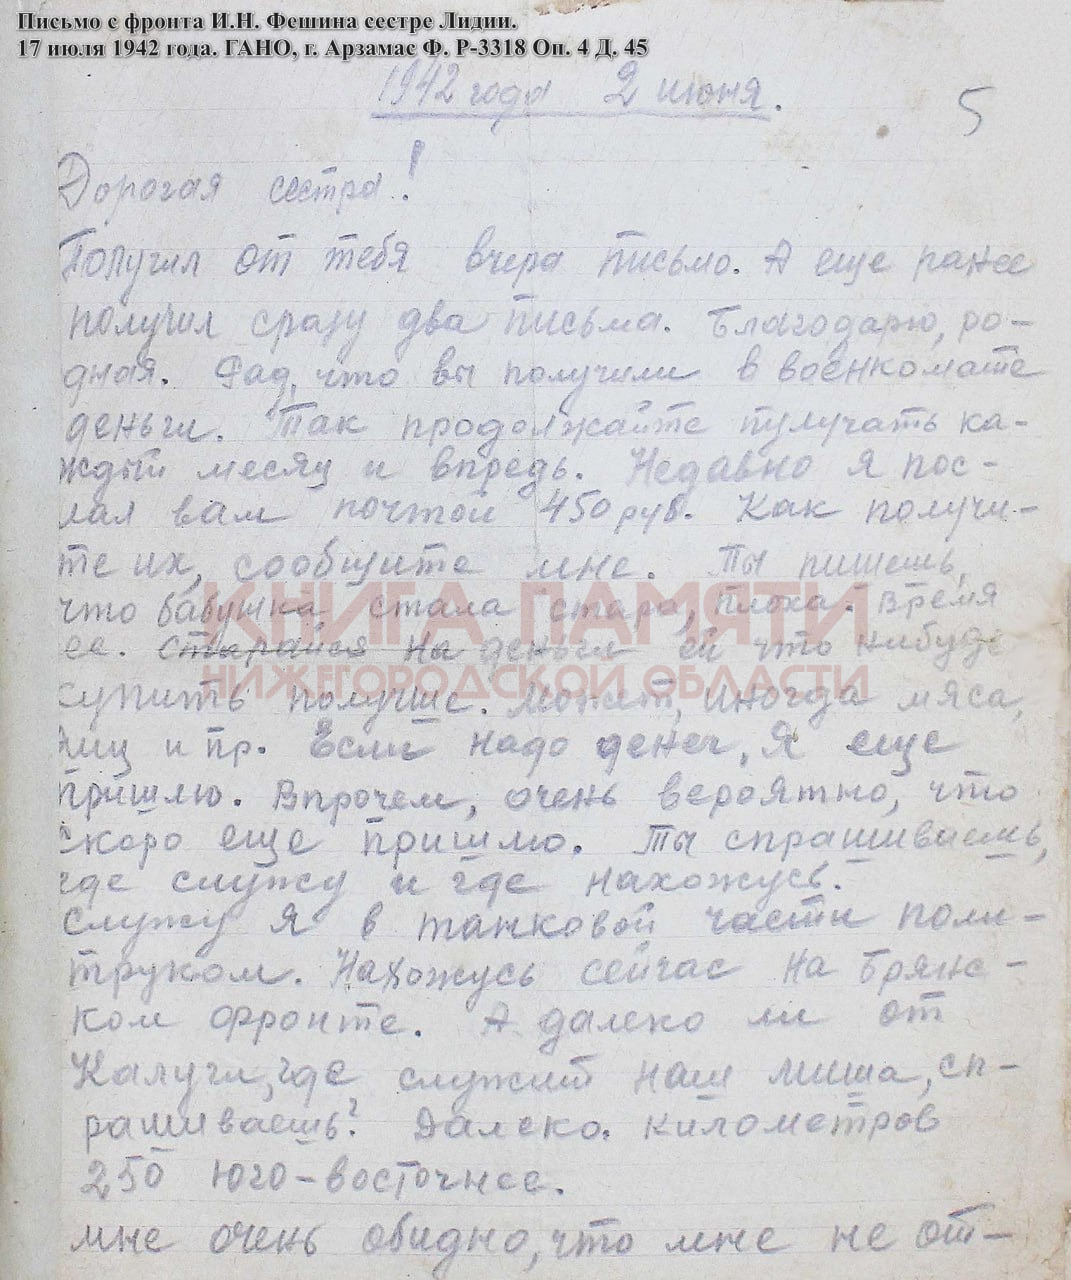 Письмо с фронта И.Н. Фешина сестре Лидии.
17 июля 1942 года. ГАНО, г. Арзамас Ф. Р-3318 Оп. 4 Д. 45
1942 года 2 июня.
5
Дорогая сестра!
Получил от тебя вчера письмо. А еще ранее
получил сразу два письма. Благодарю, ро-
дная. Рад, что вы получили в военкомате
деньги. Так продолжайте пулучать ка-
ждый месяц и впредь. Недавно я пос-
лал вам почтой 450 руб. Как получи-
те их, сообщите мне. Ты пишешь,
что бабушка стала стара, плоха. Время
ее. Старайся на деньги ей что нибудь
купить получше. Может, иногда мяса,
яиц и пр. Если надо денег, я еще
пришлю. Впрочем, очень вероятно, что
скоро еще пришлю. Ты спрашиваешь,
где служу и где нахожусь.
Служу я в танковой части поли-
труком. Нахожусь сейчас на Брянс-
ком фронте. А далеко ли от
Калуги, где служит наш Миша, сп-
рашиваешь? Далеко. Километров
250 юго-восточнее.
Мне очень обидно, что мне не от-
КНИГА ПАМЯТИ
НИЖЕГОРОДСКОЙ ОБЛАСТИ